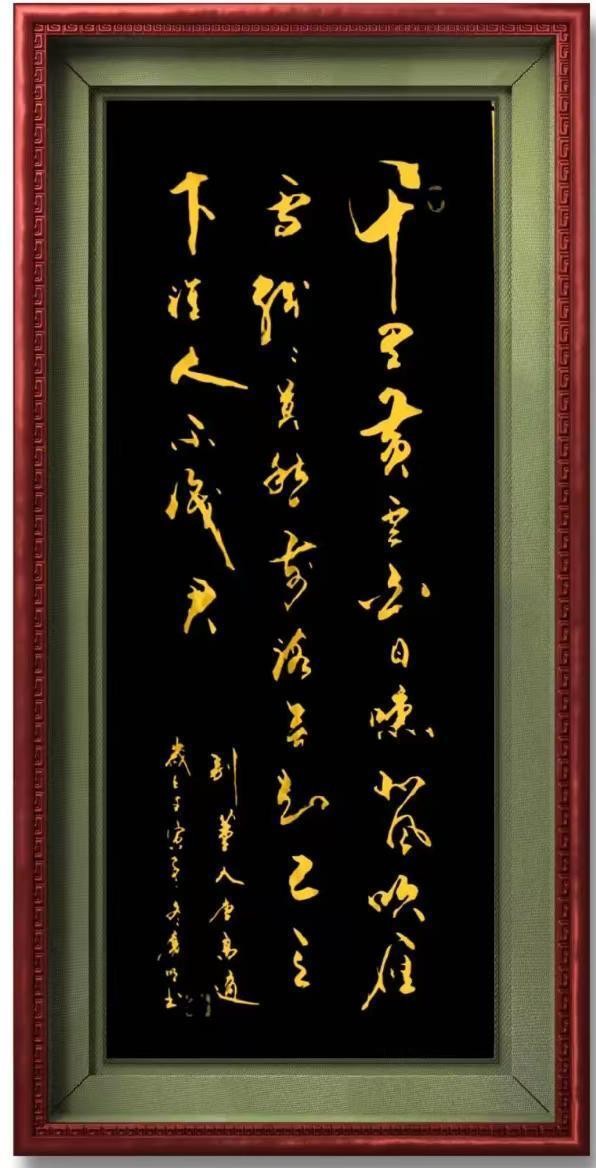 千里黄云白日曛北风吹雁
雪纷〻莫愁前路无知己天
下谁人不识君
别董大唐高适
岁壬寅年冬明书